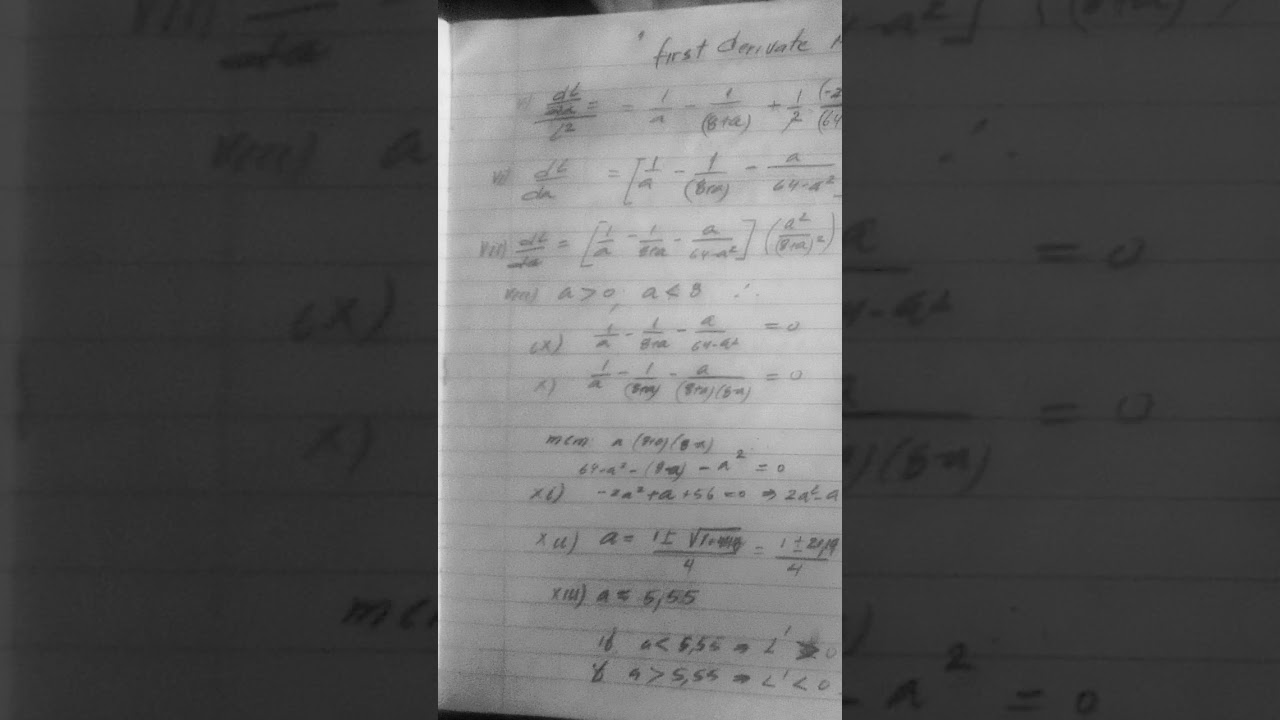 first derivate
vi) dL/da / L² = = 1/a - 1/(8+a) + 1/2 (-2 / (64
vi) dL/da = [1/a - 1/(8+a) - a/(64-a²
vii) dL/da = [1/a - 1/(8+a) - a/(64-a²)] (a²/(8+a)²)
viii) a > 0, a < 8 ∴
ix) 1/a - 1/(8+a) - a/(64-a²) = 0
x) 1/a - 1/(8+a) - a/((8+a)(8-a)) = 0
mcm: a (8+a) (8-a)
64-a² - (8-a) - a² = 0
xi) -2a² + a + 56 = 0 ⇒ 2a² - a
xii) a = (1 ± √) / 4 = (1 ± 21,19) / 4
xiii) a ≈ 5,55
if a < 5,55 ⇒ L' > 0
if a > 5,55 ⇒ L' < 0